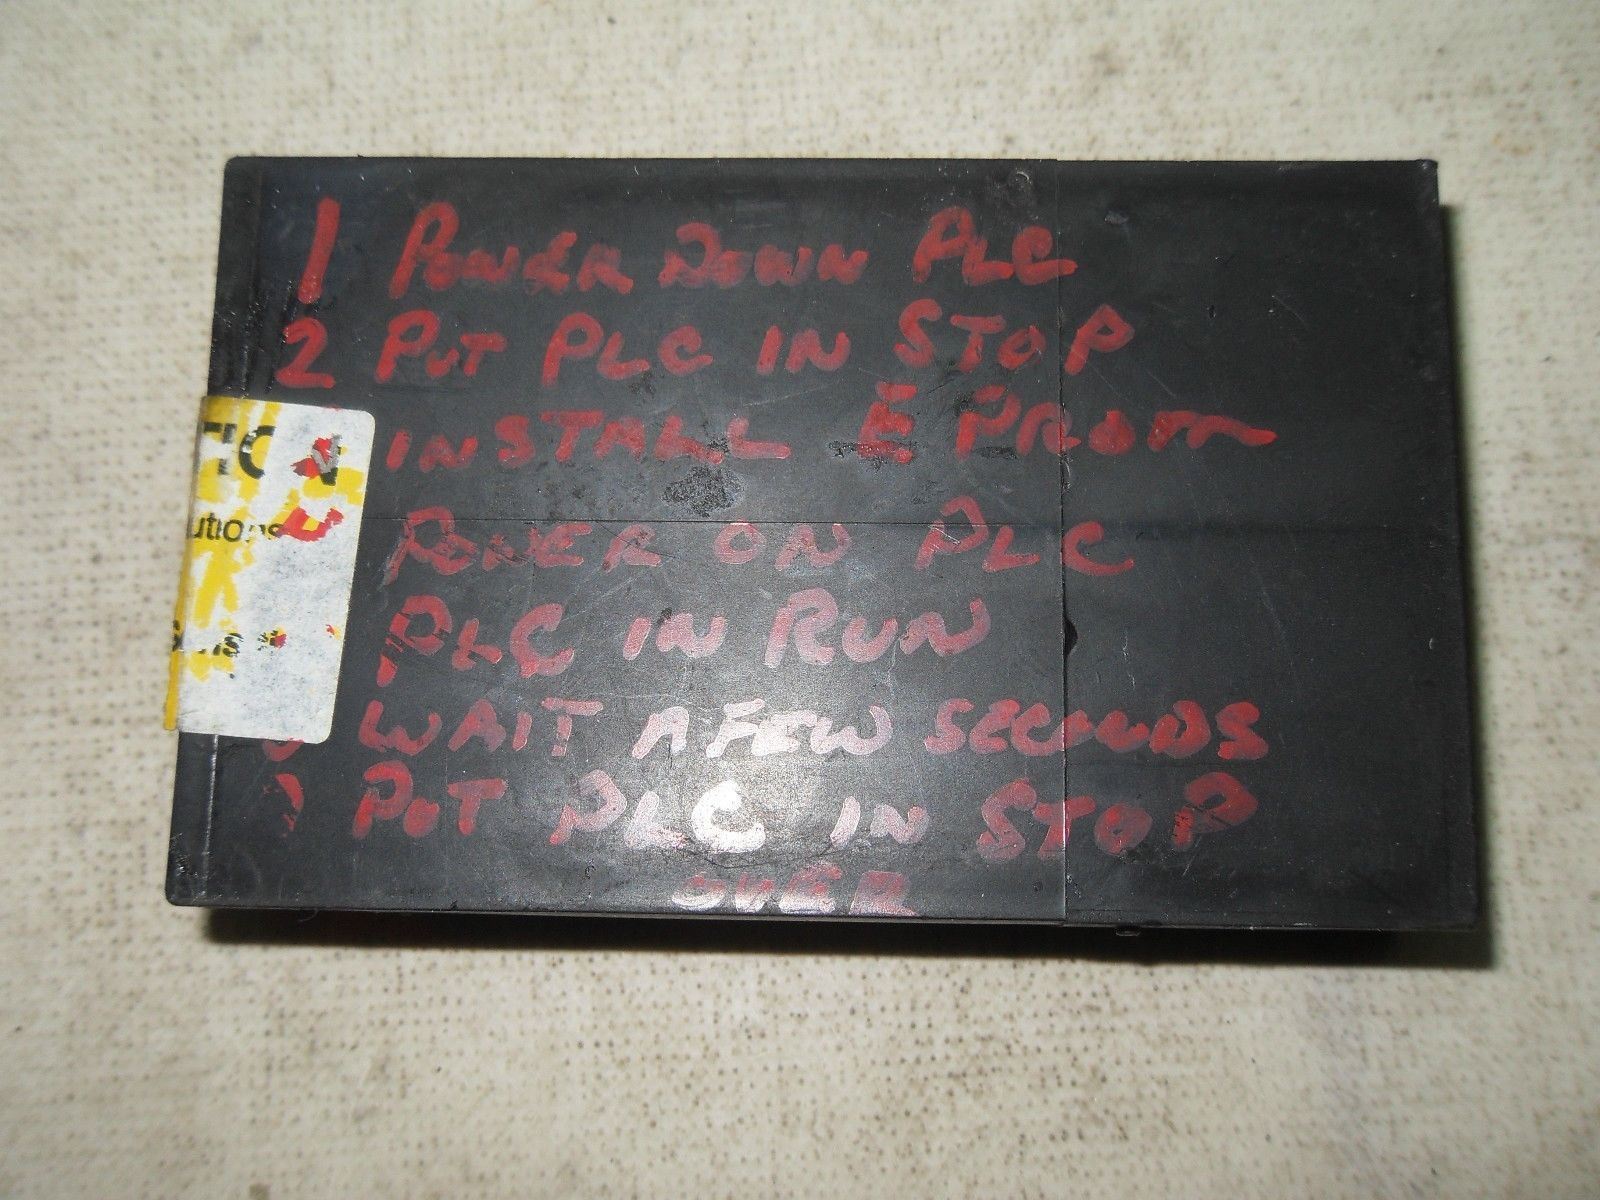 1 POWER DOWN PLC
2 PUT PLC IN STOP
INSTALL E PROM
POWER ON PLC
PLC IN RUN
WAIT A FEW SECONDS
PUT PLC IN STOP
OVER
utions